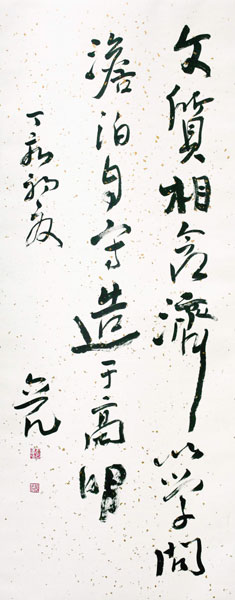 文質相含濟以學問
澹泊自守造于高明
丁亥初夏